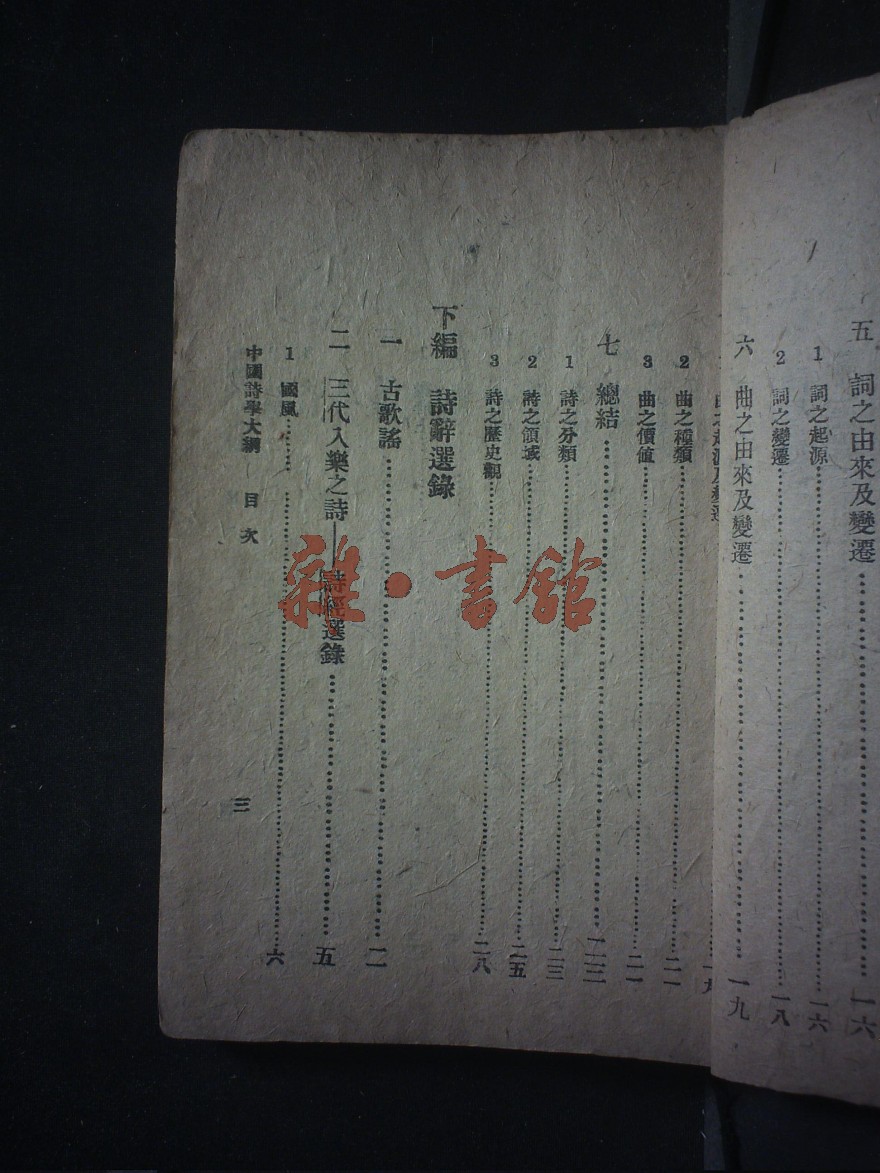 五 詞之由來及變遷……一六
1 詞之起源……一六
2 詞之變遷……一八
六 曲之由來及變遷……一九
2 曲之種類……二一
3 曲之價値……二一
七 總結……二三
1 詩之分類……二三
2 詩之領域……二五
3 詩之歷史觀……二八
下編 詩辭選錄
一 古歌謠……一
二 三代入樂之詩——詩經選錄……五
1 國風……六
中國詩學大綱 目次
三
雜·書館